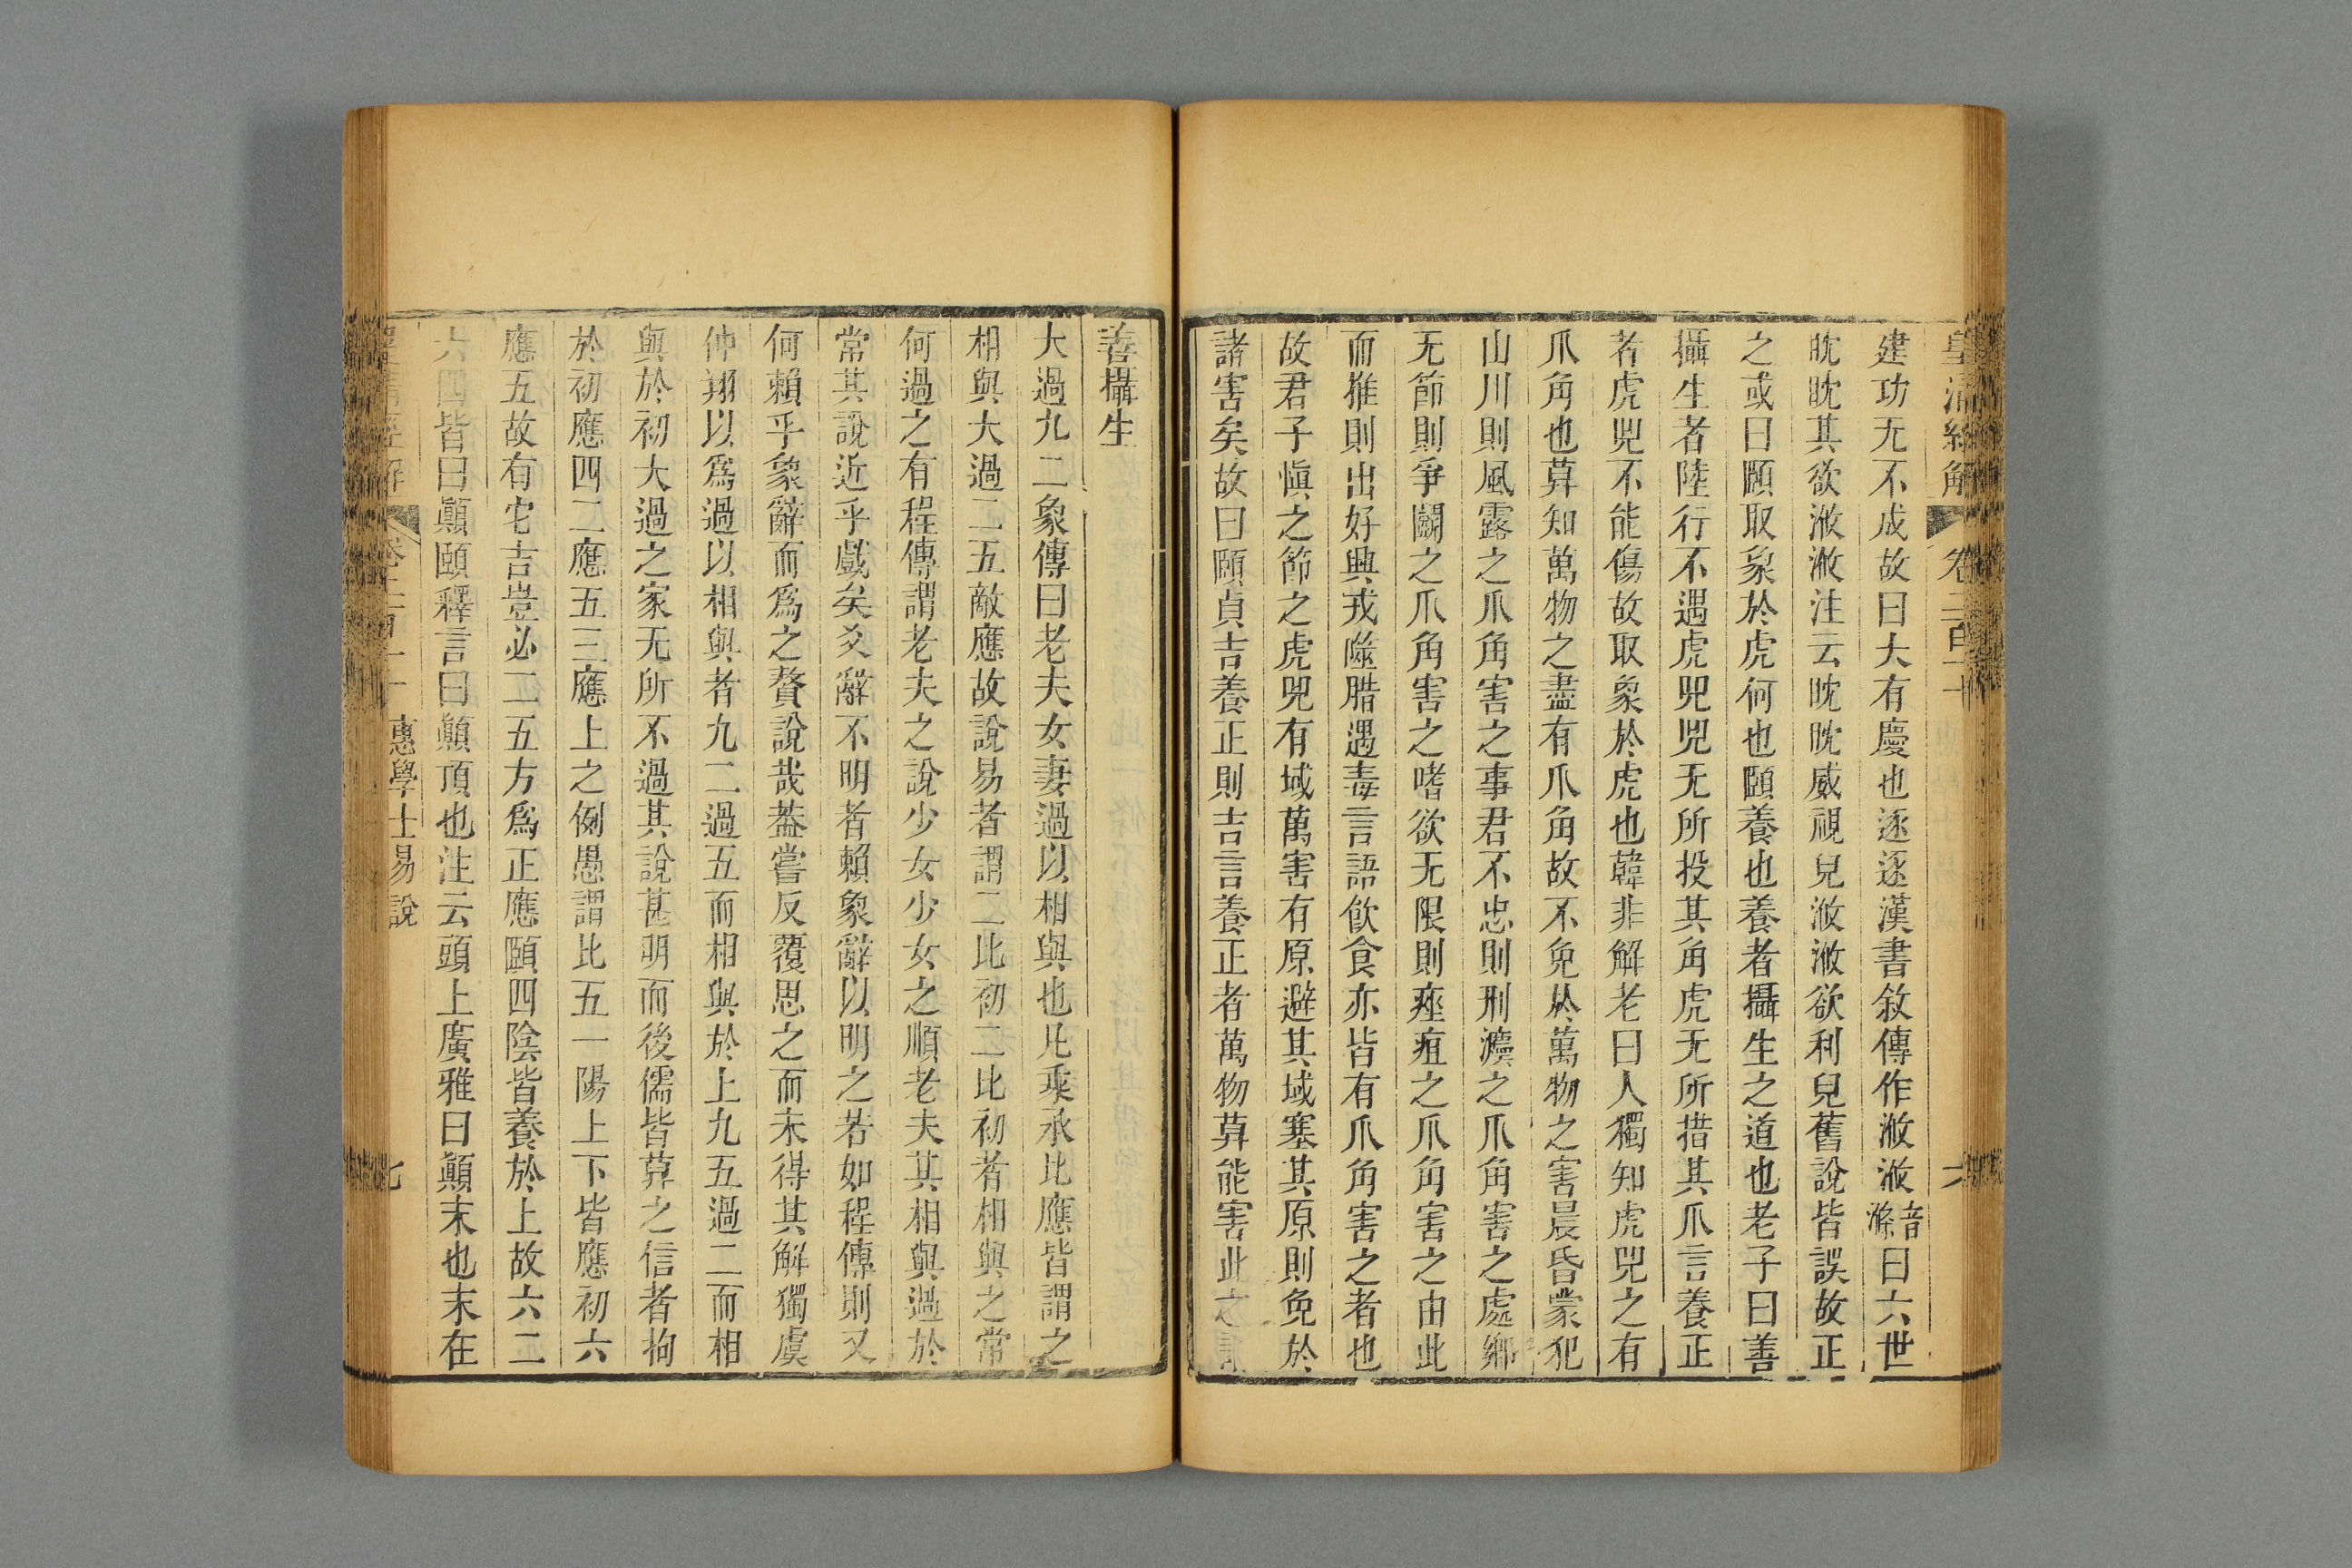 皇清經解
卷二百十
六
建功无不成故曰大有慶也逐逐漢書敘傳作浟浟音滌曰六世
眈眈其欲浟浟注云眈眈威視皃浟浟欲利皃舊說皆誤故正
之或曰頤取象於虎何也頤養也養者攝生之道也老子曰善
攝生者陸行不遇虎兕兕无所投其角虎无所措其爪言養正
者虎兕不能傷故取象於虎也韓非解老曰人獨知虎兕之有
爪角也莫知萬物之盡有爪角故不免於萬物之害晨昏蒙犯
山川則風露之爪角害之事君不忠則刑灋之爪角害之處鄉
无節則爭鬭之爪角害之嗜欲无限則痤疽之爪角害之由此
而推則出好興戎噬腊遇毒言語飮食亦皆有爪角害之者也
故君子愼之節之虎兕有域萬害有原避其域塞其原則免於
諸害矣故曰頤貞吉養正則吉言養正者萬物莫能害此之謂
善攝生
大過九二象傳曰老夫女妻過以相與也凡乘承比應皆謂之
相與大過二五敵應故說易者謂二比初二比初者相與之常
何過之有程傳謂老夫之說少女少女之順老夫其相與過於
常其說近乎戲矣爻辭不明者賴象辭以明之若如程傳則又
何賴乎象辭而爲之贅說哉葢嘗反覆思之而未得其解獨虞
仲翔以爲過以相與者九二過五而相與於上九五過二而相
與於初大過之家无所不過其說甚明而後儒皆莫之信者拘
於初應四二應五三應上之例愚謂比五一陽上下皆應初六
應五故有它吉豈必二五方爲正應頤四陰皆養於上故六二
六四皆曰顚頤釋言曰顚頂也注云頭上廣雅曰顚末也末在
皇清經解
卷二百十
惠學士易說
七